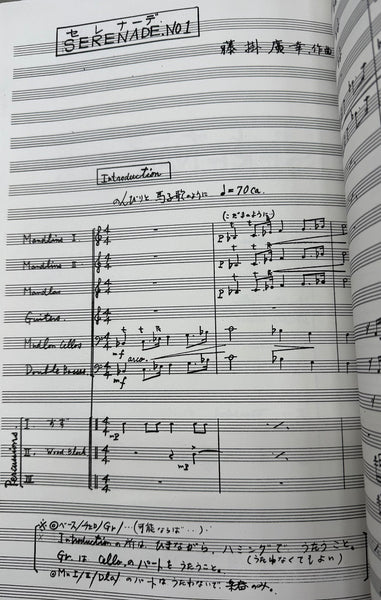 セレナーデ
SERENADE.NO1
藤掛廣幸.作曲
Introduction
のんびりと 馬子歌のように ♩=70ca.
(こだまのように)
Mandolins I
Mandolins II
Mandlas
Guitars
Mndln Cellos
Double Basses
mf
arco.
mf
P
P
P
Percussions.
I. すず
II. Wood Block
III
mP
mP
※ ◎ベース/チェロ/Gr/…(可能ならば…)
Introductionの所は、ひきながら、ハミングで うたうこと。
Gr. は Celloのパートをうたうこと。(うたわなくてもよい)
◎Mn I/II/Dla/のパートはうたわないで